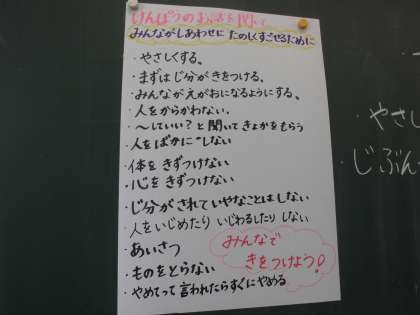 けんぽうのお話を聞いて
みんながしあわせに たのしくすごせるために
・やさしくする。
・まずはじ分がきをつける。
・みんながえがおになるようにする。
・人をからかわない。
・〜していい?と聞いてきょかをもらう
・人をばかにしない
・体をきずつけない
・心をきずつけない
・じ分がされていやなことはしない
・人をいじめたり いじわるしたり しない
・あいさつ
・ものをとらない
・やめてって言われたらすぐにやめる
みんなで
きをつけよう!
・やさし
・じぶん